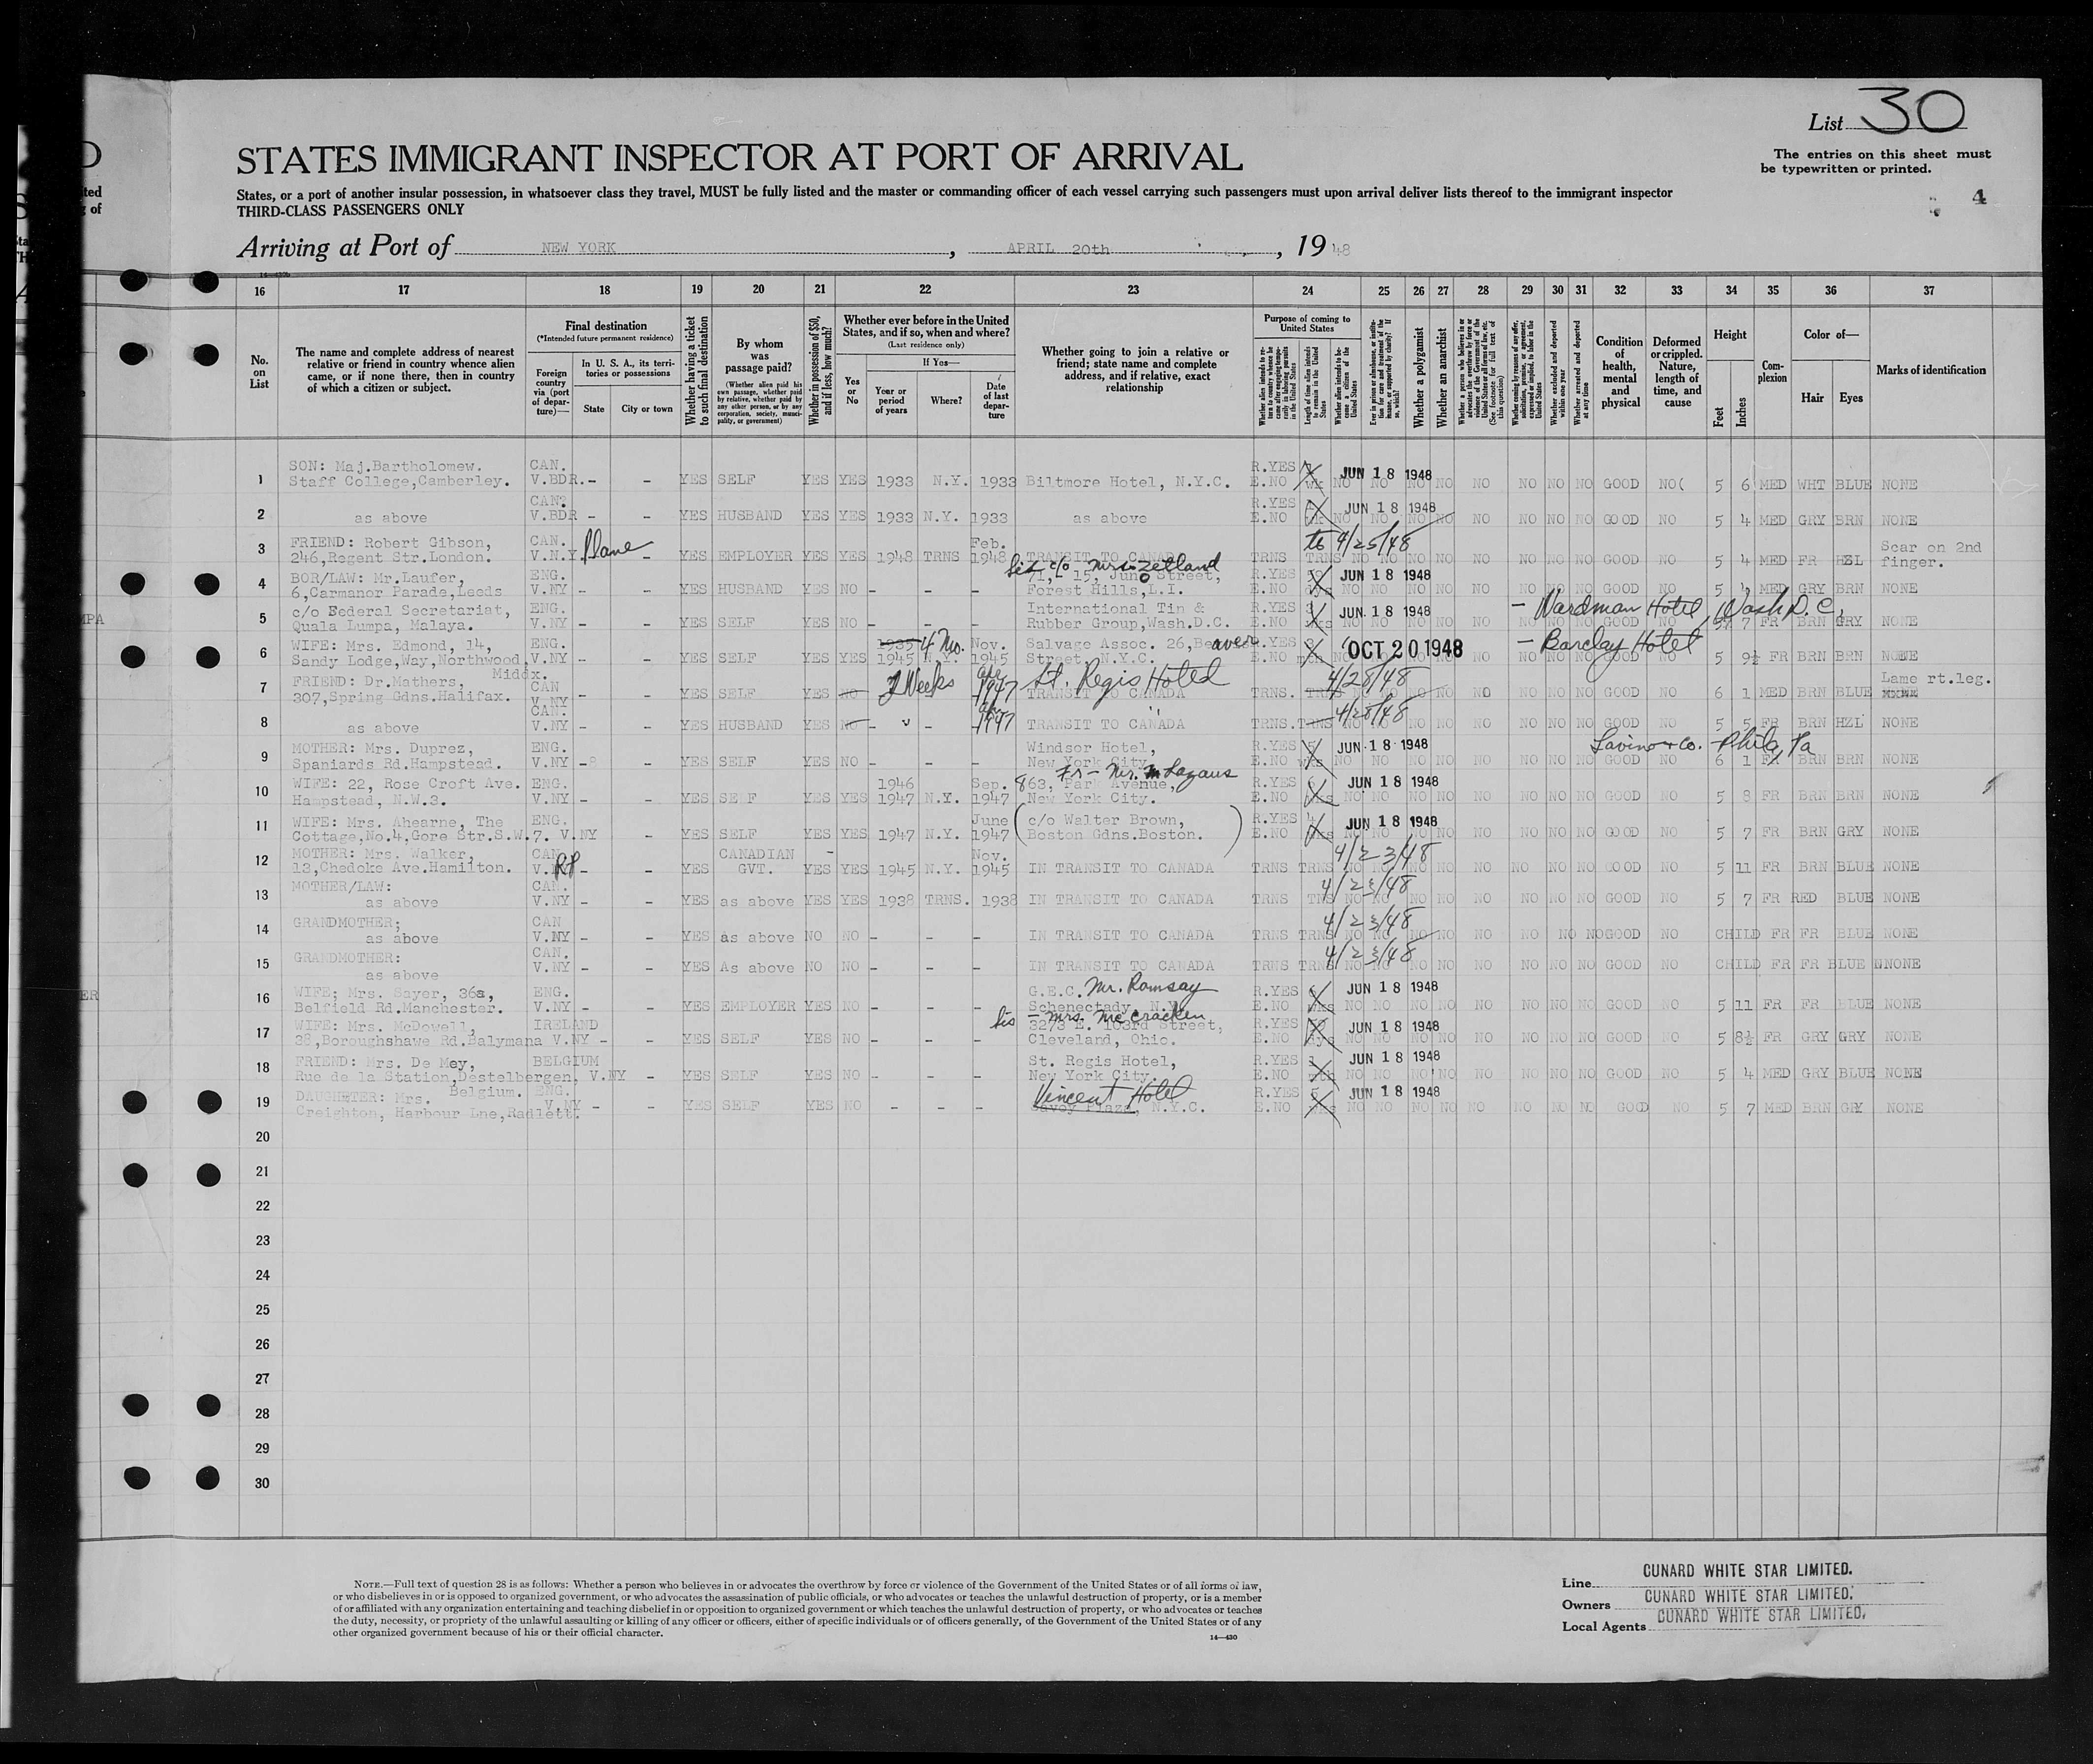 List 30
STATES IMMIGRANT INSPECTOR AT PORT OF ARRIVAL
The entries on this sheet must
be typewritten or printed.
States, or a port of another insular possession, in whatsoever class they travel, MUST be fully listed and the master or commanding officer of each vessel carrying such passengers must upon arrival deliver lists thereof to the immigrant inspector
THIRD-CLASS PASSENGERS ONLY
4
Arriving at Port of NEW YORK, APRIL 20th, 1948
16 17 18 19 20 21 22 23 24 25 26 27 28 29 30 31 32 33 34 35 36 37
No. on List
The name and complete address of nearest relative or friend in country whence alien came, or if none there, then in country of which a citizen or subject.
Final destination
(*Intended future permanent residence)
Foreign country via (port of departure)—
In U. S. A., its territories or possessions
State
City or town
Whether having a ticket to such final destination
By whom was passage paid?
(Whether alien paid his own passage, whether paid by relative, whether paid by any other person, or by any corporation, society, municipality, or government)
Whether in possession of $50, and if less, how much?
Whether ever before in the United States, and if so, when and where?
(Last residence only)
Yes or No
If Yes—
Year or period of years
Where?
Date of last departure
Whether going to join a relative or friend; state name and complete address, and if relative, exact relationship
Purpose of coming to United States
Length of time alien intends to remain in the United States
Whether alien intends to become a citizen of the United States
Whether a polygamist
Whether an anarchist
Whether excluded and deported within one year
Whether arrested and deported at any time
Condition of health, mental and physical
Deformed or crippled. Nature, length of time, and cause
Height
Feet
Inches
Complexion
Color of—
Hair
Eyes
Marks of identification
1 SON: Maj.Bartholomew. Staff College,Camberley. CAN. V.BDR. - - YES SELF YES YES 1933 N.Y. 1933 Biltmore Hotel, N.Y.C. R.YES E.NO JUN 18 1948 NO NO NO NO NO NO NO NO GOOD NO 5 6 MED WHT BLUE NONE
2 as above CAN. V.BDR - - YES HUSBAND YES YES 1933 N.Y. 1933 as above R.YES E.NO JUN 18 1948 NO NO NO NO NO NO NO NO GOOD NO 5 4 MED GRY BRN NONE
3 FRIEND: Robert Gibson, 246,Regent Str.London. CAN. V.N.Y. Plane - YES EMPLOYER YES YES 1948 TRNS Feb. 1948 TRANSIT TO CANADA TRNS TRNS to 4/25/48 NO NO NO NO NO NO NO NO GOOD NO 5 4 MED FR HZL Scar on 2nd finger.
4 BOR/LAW: Mr.Laufer, 6,Carmanor Parade,Leeds ENG. V.NY - - YES HUSBAND YES NO - - - Sis c/o Mrs. Zetland 71, 15, Juno Street, Forest Hills,L.I. R.YES E.NO JUN 18 1948 NO NO NO NO NO NO NO NO GOOD NO 5 4 MED GRY BRN NONE
5 c/o Federal Secretariat, Quala Lumpa, Malaya. ENG. V.NY - - YES SELF YES NO - - - International Tin & Rubber Group,Wash.D.C. R.YES E.NO JUN 18 1948 - Wardman Hotel, Wash D.C. 7 FR BRN GRY NONE
6 WIFE: Mrs. Edmond, 14, Sandy Lodge,Way,Northwood, Middx. ENG. V.NY - - YES SELF YES YES 1935 4 Mo. 1945 N.Y. Nov. 1945 Salvage Assoc. 26,Beaver Street, N.Y.C. R.YES E.NO OCT 20 1948 - Barclay Hotel 5 9½ FR BRN BRN NONE
7 FRIEND: Dr.Mathers, 307,Spring Gdns.Halifax. CAN V.NY - - YES SELF YES NO 2 Weeks 1947 St. Regis Hotel TRANSIT TO CANADA TRNS. TRNS 4/28/48 NO NO NO NO NO NO GOOD NO 6 1 MED BRN BLUE Lame rt.leg.
8 as above CAN. V.NY - - YES HUSBAND YES NO - - 1947 " TRANSIT TO CANADA TRNS. TRNS 4/28/48 NO NO NO NO NO NO GOOD NO 5 5 FR BRN HZL NONE
9 MOTHER: Mrs. Duprez, Spaniards Rd.Hampstead. ENG. V.NY - - YES SELF YES NO - - - Windsor Hotel, New York City. R.YES E.NO JUN 18 1948 Lavino & Co. Phila, Pa NO NO NO NO NO NO NO NO GOOD NO 6 1 FR BRN BRN NONE
10 WIFE: 22, Rose Croft Ave. Hampstead, N.W.3. ENG. V.NY - - YES SELF YES YES 1946 1947 N.Y. Sep. 1947 Fr - Mr. 863, Park Avenue, New York City. R.YES E.NO JUN 18 1948 NO NO NO NO NO NO NO NO GOOD NO 5 8 FR BRN BRN NONE
11 WIFE: Mrs. Ahearne, The Cottage,No.4,Gore Str.S.W.7. ENG. V.NY - YES SELF YES YES 1947 N.Y. June 1947 (c/o Walter Brown, Boston Gdns.Boston.) R.YES E.NO JUN 18 1948 NO NO NO NO NO NO NO NO GOOD NO 5 7 FR BRN GRY NONE
12 MOTHER: Mrs. Walker, 13,Chedoke Ave.Hamilton. CAN. V. RP - - YES CANADIAN GVT. - YES YES 1945 N.Y. Nov. 1945 IN TRANSIT TO CANADA TRNS TRNS 4/23/48 NO NO NO NO NO NO NO NO GOOD NO 5 11 FR BRN BLUE NONE
13 MOTHER/LAW: as above CAN. V.NY - - YES as above YES YES 1938 TRNS. 1938 IN TRANSIT TO CANADA TRNS TNS 4/23/48 NO NO NO NO NO NO NO NO GOOD NO 5 7 FR RED BLUE NONE
14 GRANDMOTHER; as above CAN V.NY - - YES as above NO NO - - - IN TRANSIT TO CANADA TRNS TRNS 4/23/48 NO NO NO NO NO NO NO NO GOOD NO CHILD FR FR BLUE NONE
15 GRANDMOTHER: as above CAN. V.NY - - YES As above NO NO - - - IN TRANSIT TO CANADA TRNS TRNS 4/23/48 NO NO NO NO NO NO NO NO GOOD NO CHILD FR FR BLUE NONE
16 WIFE; Mrs. Sayer, 36a, Belfield Rd.Manchester. ENG. V.NY - - YES EMPLOYER YES NO - - - G.E.C. Mr. Ramsay Schenectady, N.Y. R.YES E.NO JUN 18 1948 NO NO NO NO NO NO NO NO GOOD NO 5 11 FR FR BLUE NONE
17 WIFE: Mrs. McDowell, 38,Boroughshawe Rd.Balymana IRELAND V.NY - - YES SELF YES NO - - - Sis - Mrs. McCracken 3273 E. 103rd Street, Cleveland, Ohio. R.YES E.NO JUN 18 1948 NO NO NO NO NO NO NO NO GOOD NO 5 8½ FR GRY GRY NONE
18 FRIEND: Mrs. De Mey, Rue de la Station,Destelbergen, Belgium. BELGIUM V.NY - YES SELF YES NO - - - St. Regis Hotel, New York City. R.YES E.NO JUN 18 1948 NO NO NO NO NO NO NO NO GOOD NO 5 4 MED GRY BLUE NONE
19 DAUGHTER: Mrs. Creighton, Harbour Lne,Radlett. ENG. V.NY - - YES SELF YES NO - - - Vincent Hotel Savoy Plaza, N.Y.C. R.YES E.NO JUN 18 1948 NO NO NO NO NO NO NO NO GOOD NO 5 7 MED BRN GRY NONE
20
21
22
23
24
25
26
27
28
29
30
NOTE.—Full text of question 28 is as follows: Whether a person who believes in or advocates the overthrow by force or violence of the Government of the United States or of all forms of law,
or who disbelieves in or is opposed to organized government, or who advocates the assassination of public officials, or who advocates or teaches the unlawful destruction of property, or is a member
of or affiliated with any organization entertaining and teaching disbelief in or opposition to organized government or which teaches the unlawful destruction of property, or who advocates or teaches
the duty, necessity, or propriety of the unlawful assaulting or killing of any officer or officers, either of specific individuals or of officers generally, of the Government of the United States or of any
other organized government because of his or their official character.
14—430
Line CUNARD WHITE STAR LIMITED.
Owners CUNARD WHITE STAR LIMITED.
Local Agents CUNARD WHITE STAR LIMITED.